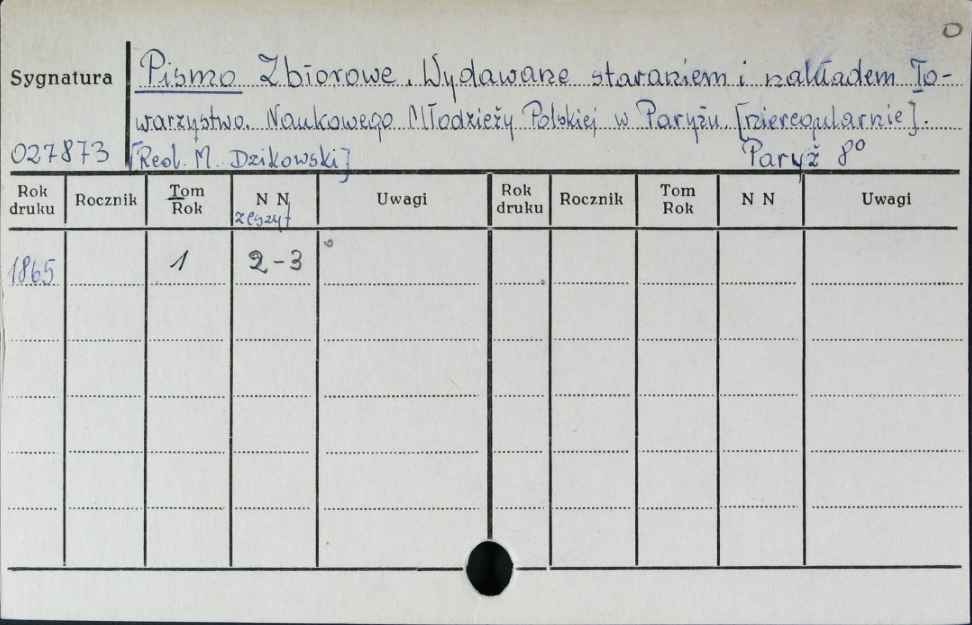 Sygnatura Pismo Zbiorowe. Wydawane staraniem i nakładem To-
warzystwo. Naukowego Młodzieży Polskiej w Paryżu. [nieregularnie].
027873 [Red. M. Dzikowski] Paryż 8°
Rok druku Rocznik Tom Rok N N zeszyt Uwagi Rok druku Rocznik Tom Rok N N Uwagi
1865 1 2-3